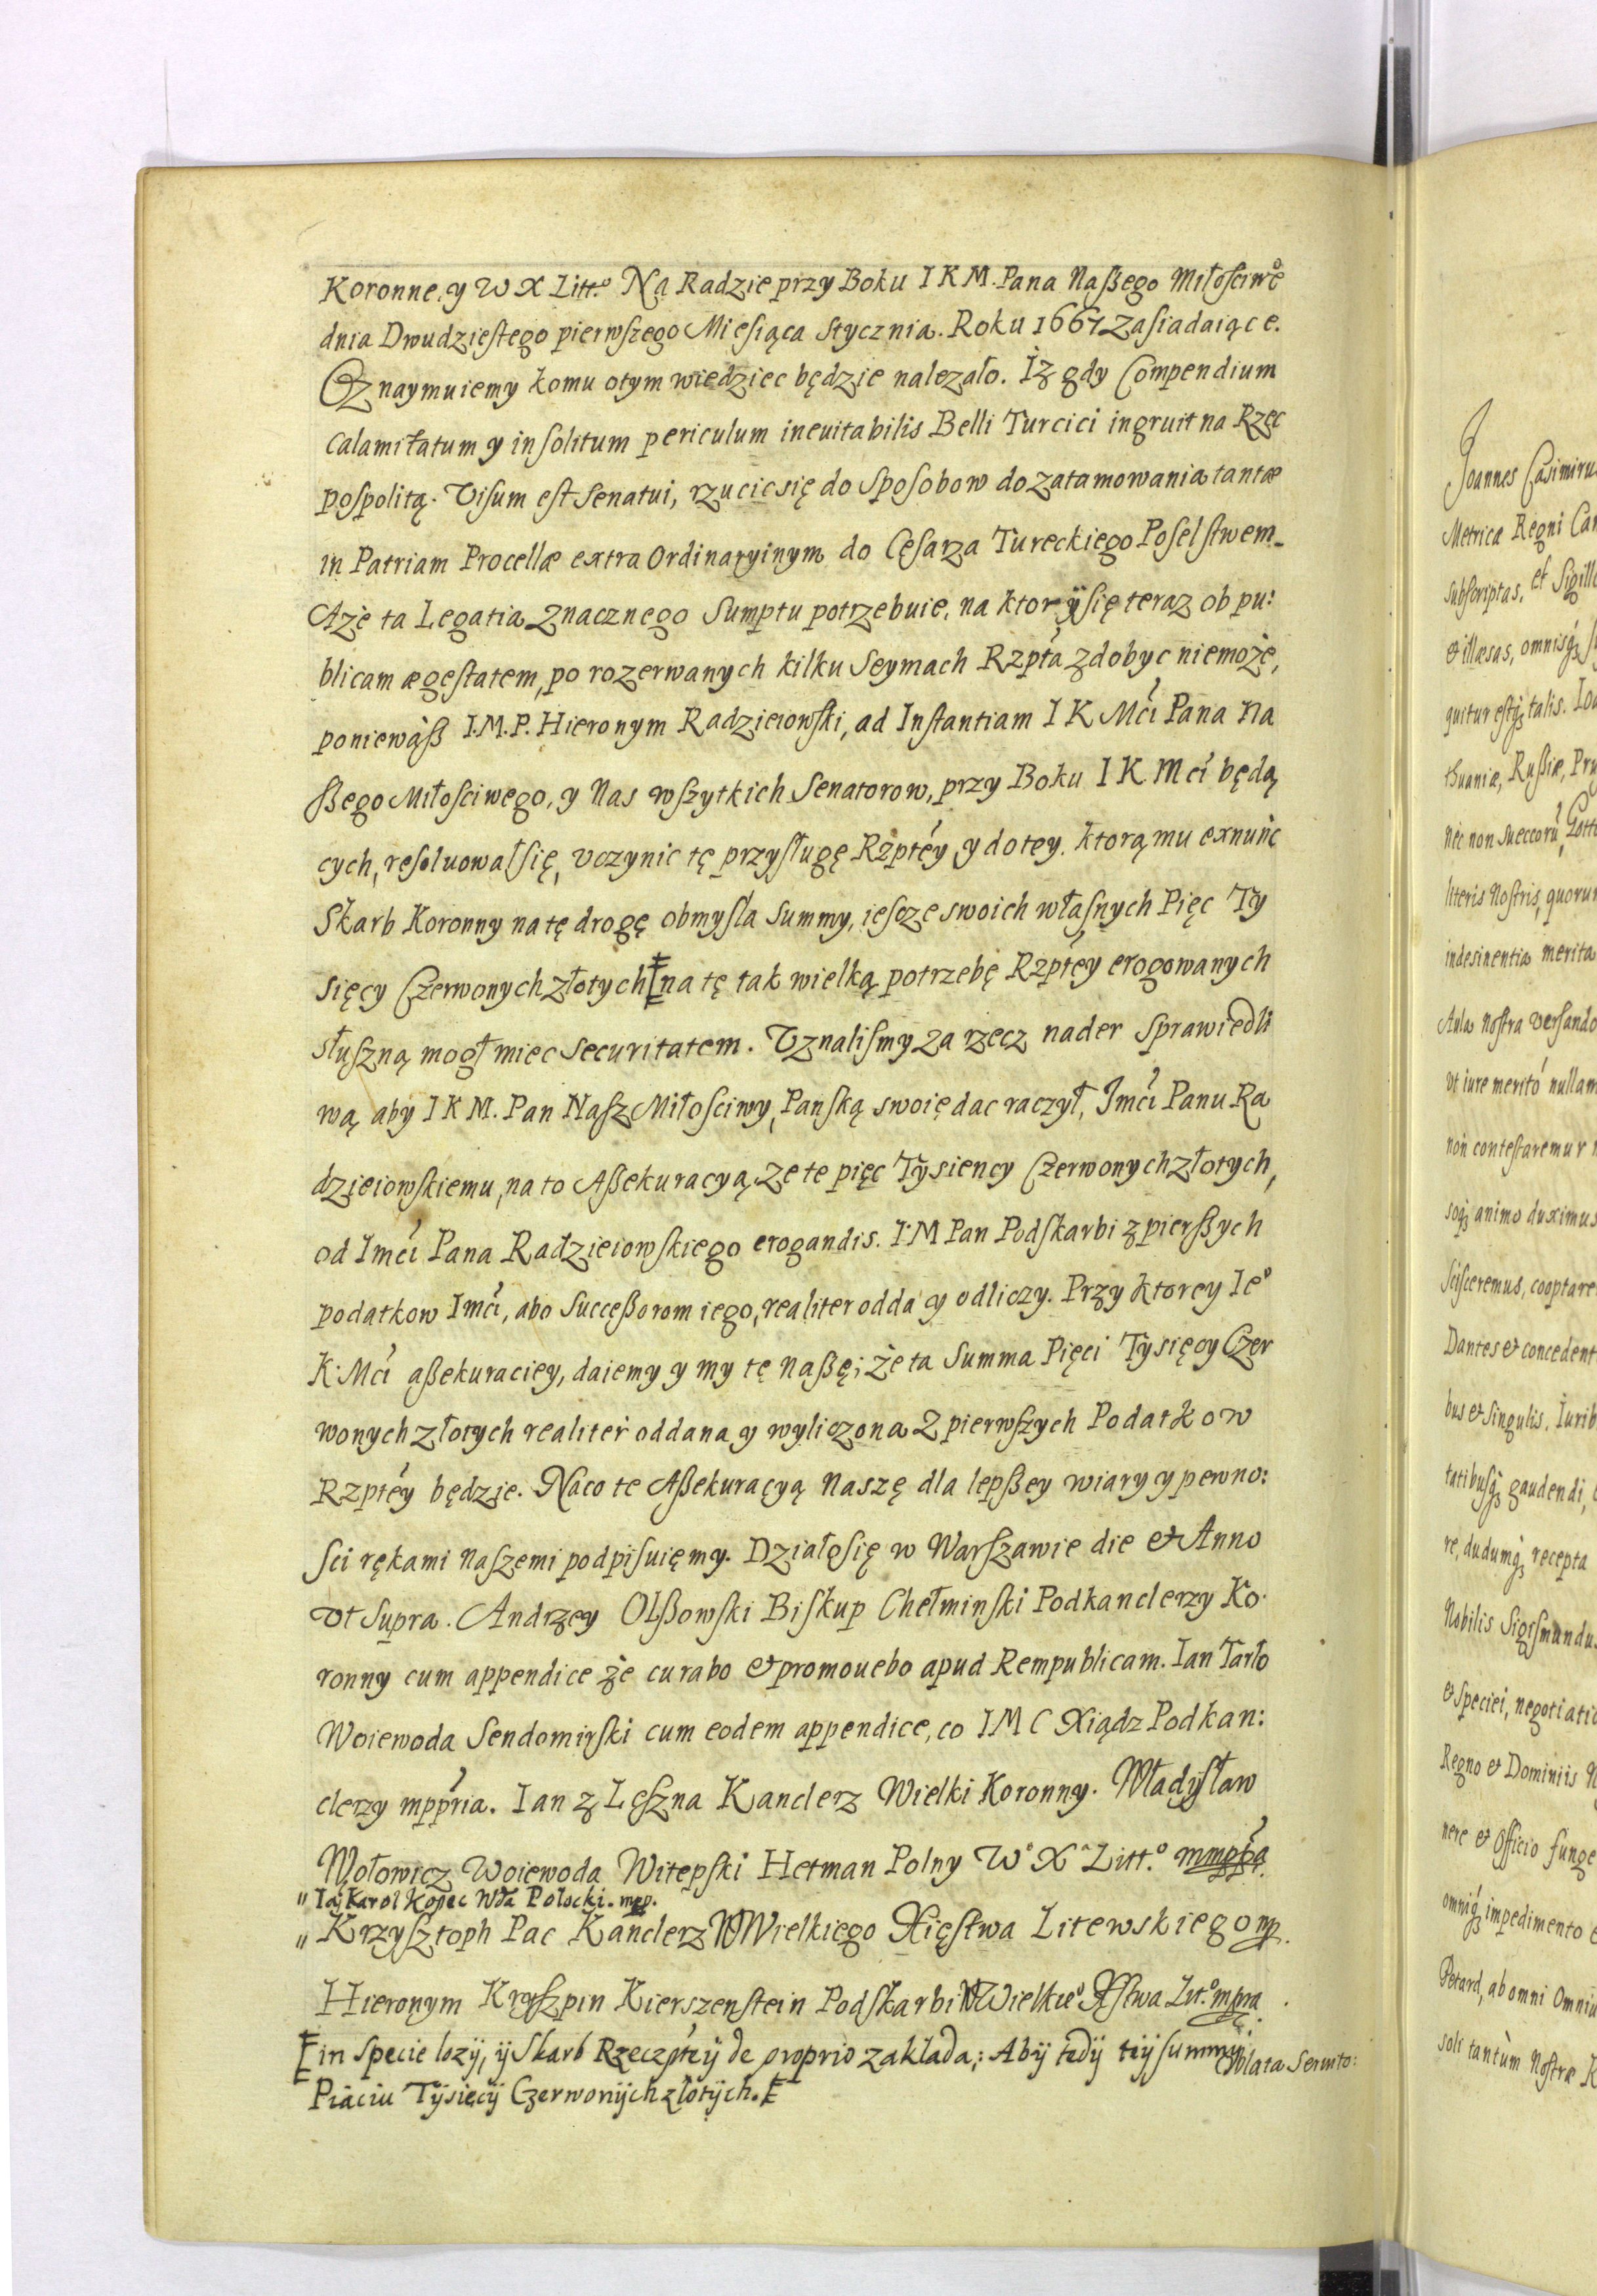 Koronne, y W X Litt.º Na Radzie przy Boku I K M. Pana Naßego Miłosciweº
dnia Dwudziestego pierwszego Miesiąca Stycznia. Roku 1667 Zasiadaiące.
Oznaymuiemy komu otym wiedziec będzie nalezało. Iż gdy Compendium
calamitatum y insolitum periculum ineuitabilis Belli Turcici ingruit na Rzęc
pospolitą. Visum est Senatui, rzucic się do Sposobow do zatamowania tantæ
in Patriam Procellæ extra Ordinaryinym do Cęsarza Tureckiego Poselstwem.
Aże ta Legatia Znacznego Sumptu potrzebuie, na ktorÿ się teraz ob pu:
blicam ægestatem, po rozerwanych kilku Seymach Rzpta zdobyc niemoże,
poniewąß I.M.P. Hieronym Radzieiowski, ad Instantiam I K Mći Pana Na
ßego Miłosciwego, y Nas wszytkich Senatorow, przy Boku I K Mći będą
cych, resoluował się, vczynic tę przysługę Rzptéy y do tey. ktorą mu exnunc
Skarb Koronny na tę drogę obmysla Summy, iescze swoich własnych Pięc Ty
sięcy Czerwonych złotych na tę tak wielką potrzebę Rzptéy erogowanych
słuszną mogł miec securitatem. Vznalismy za rzecz nader sprawiedli
wą, aby I K M. Pan Nasz Miłosciwy, Panską swoię dac raczył, Imći Panu Ra
dzieiowskiemu, na to Aßekuracyą, ze te pięc Tysiency Czerwonych złotych,
od Imći Pana Radzieiowskiego erogandis. I.M Pan Podskarbi z pierßych
podatkow Imći, abo Succeßorom iego, realiter odda y odliczy. Przy ktorey Ieº
K. Mći aßekuraciey, daiemy y my tę naßę, że ta Summa Pięci Tysięcy Czer
wonych złotych realiter oddana y wyliczona Z pierwszych Podatkow
Rzptéy będzie. Naco te Aßekuracyą naszę dla lepßey wiary y pewno:
sci rękami naszemi podpisuięmy. Działo się w Warszawie die & Anno
vt Supra. Andrzey Olßowski Biskup Chełminski Podkanclerzy Ko.
ronny cum appendice że curabo & promouebo apud Rempublicam. Ian Tarło
Woiewoda Sendomirski cum eodem appendice, co I M C Xiądz Podkan:
clerzy mppria. Ian z Leszna Kanclerz Wielki Koronny. Władysław
Wołowicz Woiewoda Witepski Hetman Polny Wº X Litt.º mmppa
" Iaÿ Karol Kopec Wda Połocki. mpp.
" Krzysztoph Pac Kanclerz Wielkiego Xięstwa Litewskiego mp.
Hieronym Kryszpin Kierszenstein Podskarbi Wielkieº Xstwa Lit.º mpra
in Specie lozÿ, ÿ Skarb Rzeczptéÿ de proprio zaklada; Abÿ tedÿ teÿ summÿ
Oblata Seruito:
Piąciu Tÿsięcÿ Czerwonÿch złotÿch.
Joannes Casimirus
Metrica Regni Can
subscriptas, et Sigillo
& illæsas, omnisq̃
quitur estq̃ talis. Ioa
thuaniæ, Rußiæ, Pru
nec non Sueccorũ, Gotto
literis Nostris, quorum
indesinentia merita
Aula Nostra Versando
vt iure meritó nullam
non contestaremur
soq̃ animo duximus
scisceremus, cooptare
Dantes & concedent
bus & Singulis, Iurib
tatibusq̃ gaudendi,
re, dudumq̃ recepta
Nobilis Sigismundus
& Speciei, negotiatio
Regno & Dominiis N
nere & Officio funge
omniq̃ impedimento
Petard, ab omni Omniu
soli tantùm Nostræ K